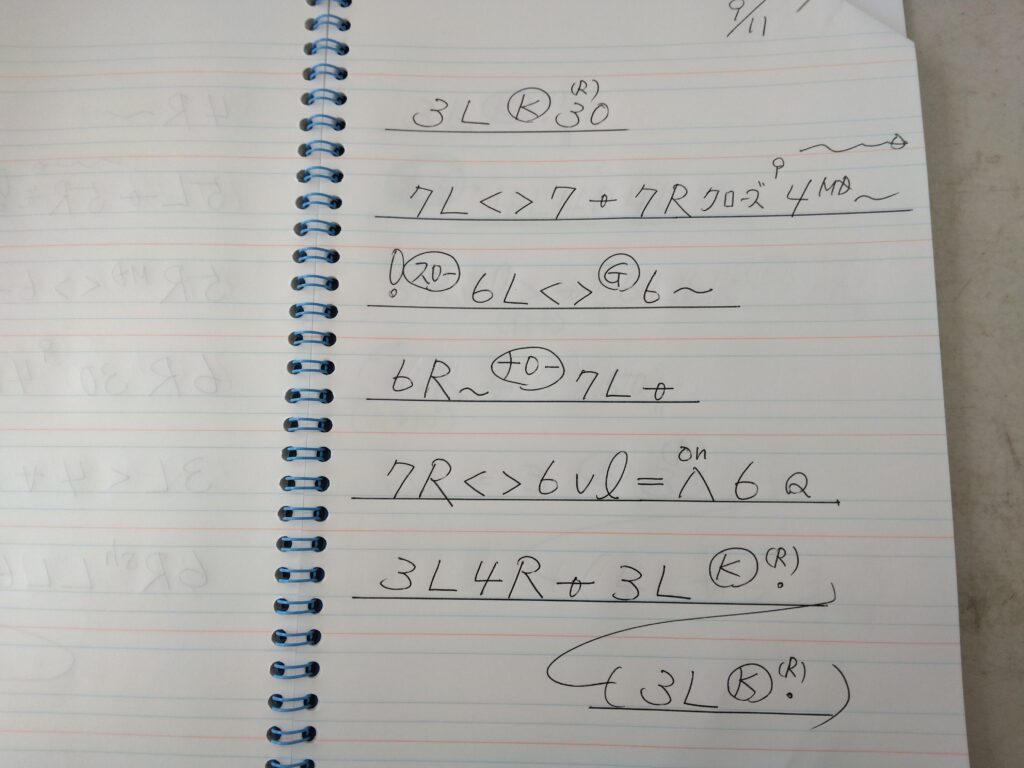 9/11
3L Ⓚ (R) 30
7L <> 7 + 7R クローズ 9 4 MD ~
! スロー 6L <> Ⓖ 6 ~
6R ~ ナロー 7L +
7R <> 6 vl = on ∧ 6 Q
3L 4R + 3L Ⓚ (R) .
(3L Ⓚ (R) .)